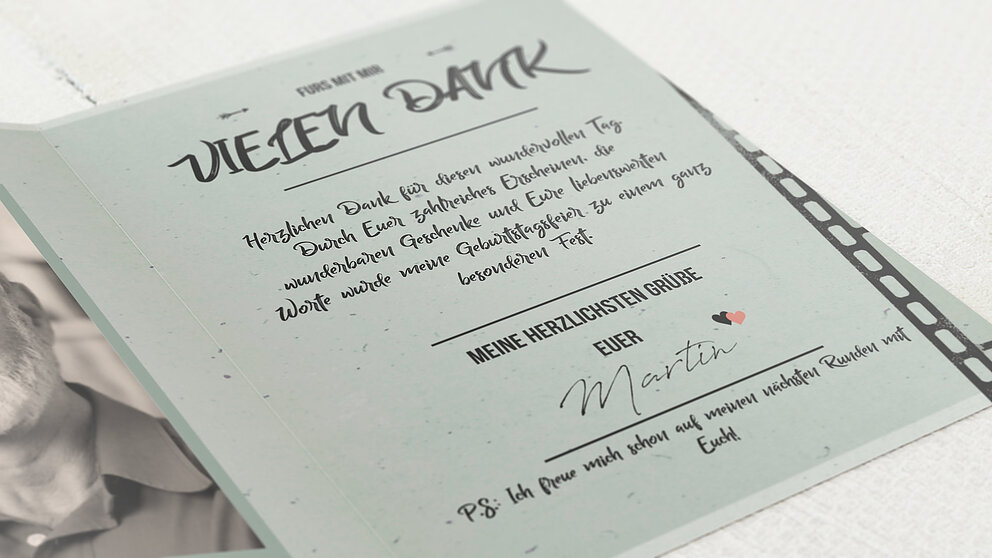 FÜRS MIT MIR
VIELEN DANK
Herzlichen Dank für diesen wundervollen Tag.
Durch Euer zahlreiches Erscheinen, die
wunderbaren Geschenke und Eure liebenswerten
Worte wurde meine Geburtstagsfeier zu einem ganz
besonderen Fest.
MEINE HERZLICHSTEN GRÜßE
EUER
Martin
P.S.: Ich freue mich schon auf meinen nächsten Runden mit
Euch!